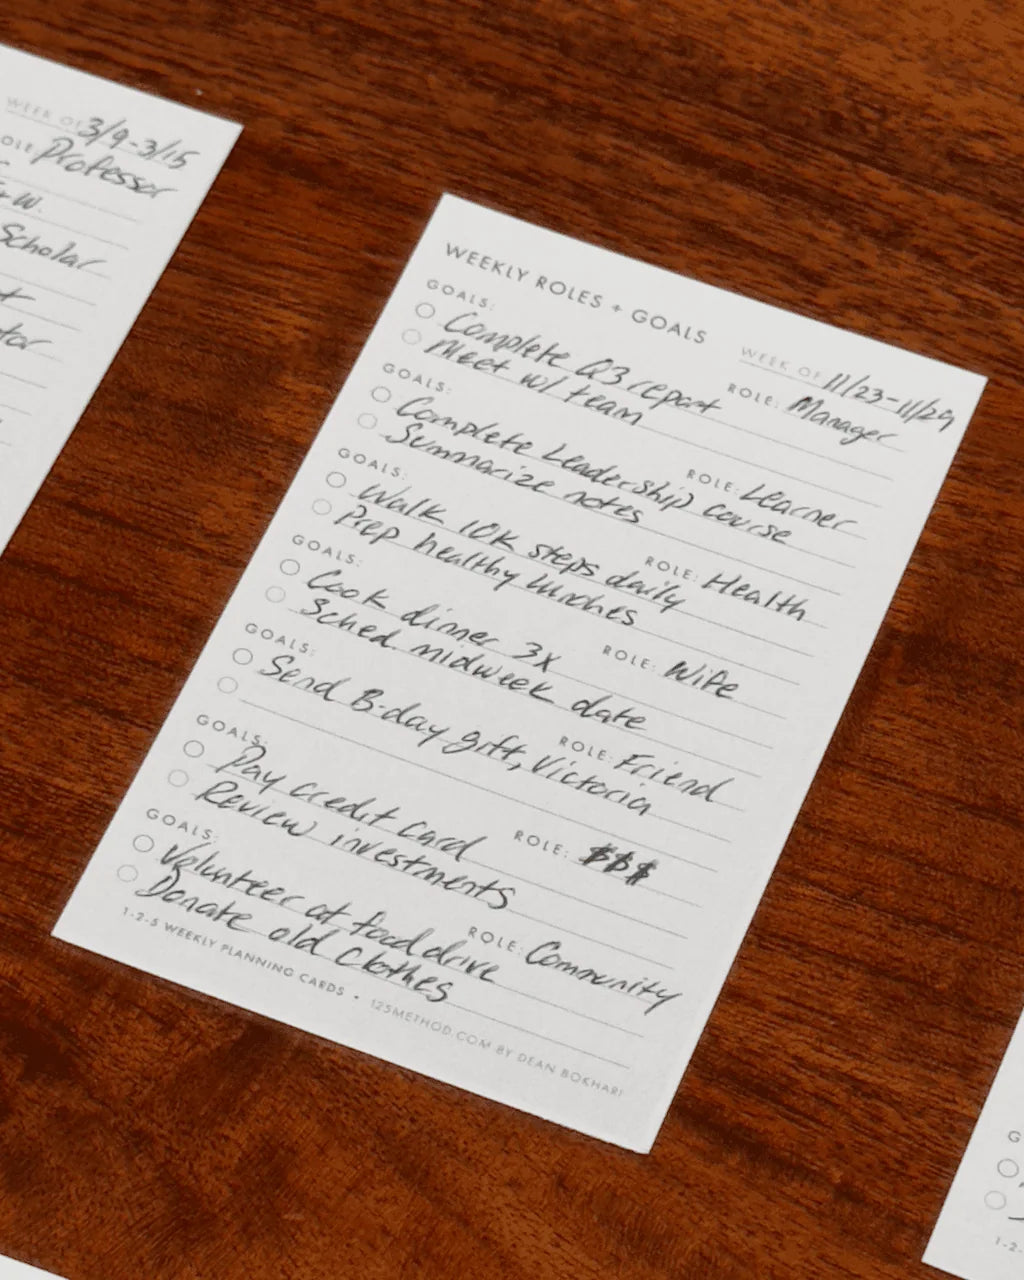 WEEK OF 3/9-3/15
OLE: Professor
W.
Scholar
WEEKLY ROLES + GOALS
WEEK OF 11/23-11/29
GOALS:
ROLE: Manager
Complete Q3 report
Meet w/ team
GOALS:
ROLE: Learner
Complete Leadership course
Summarize notes
GOALS:
ROLE: Health
Walk 10K steps daily
Prep healthy lunches
GOALS:
ROLE: Wife
Cook dinner 3x
Sched. midweek date
GOALS:
ROLE: Friend
Send B-day gift, Victoria
GOALS:
ROLE: $$$
Pay credit card
Review investments
GOALS:
ROLE: Community
Volunteer at food drive
Donate old clothes
1-2-5 WEEKLY PLANNING CARDS • 125METHOD.COM BY DEAN BOKHARI
G
1-2-